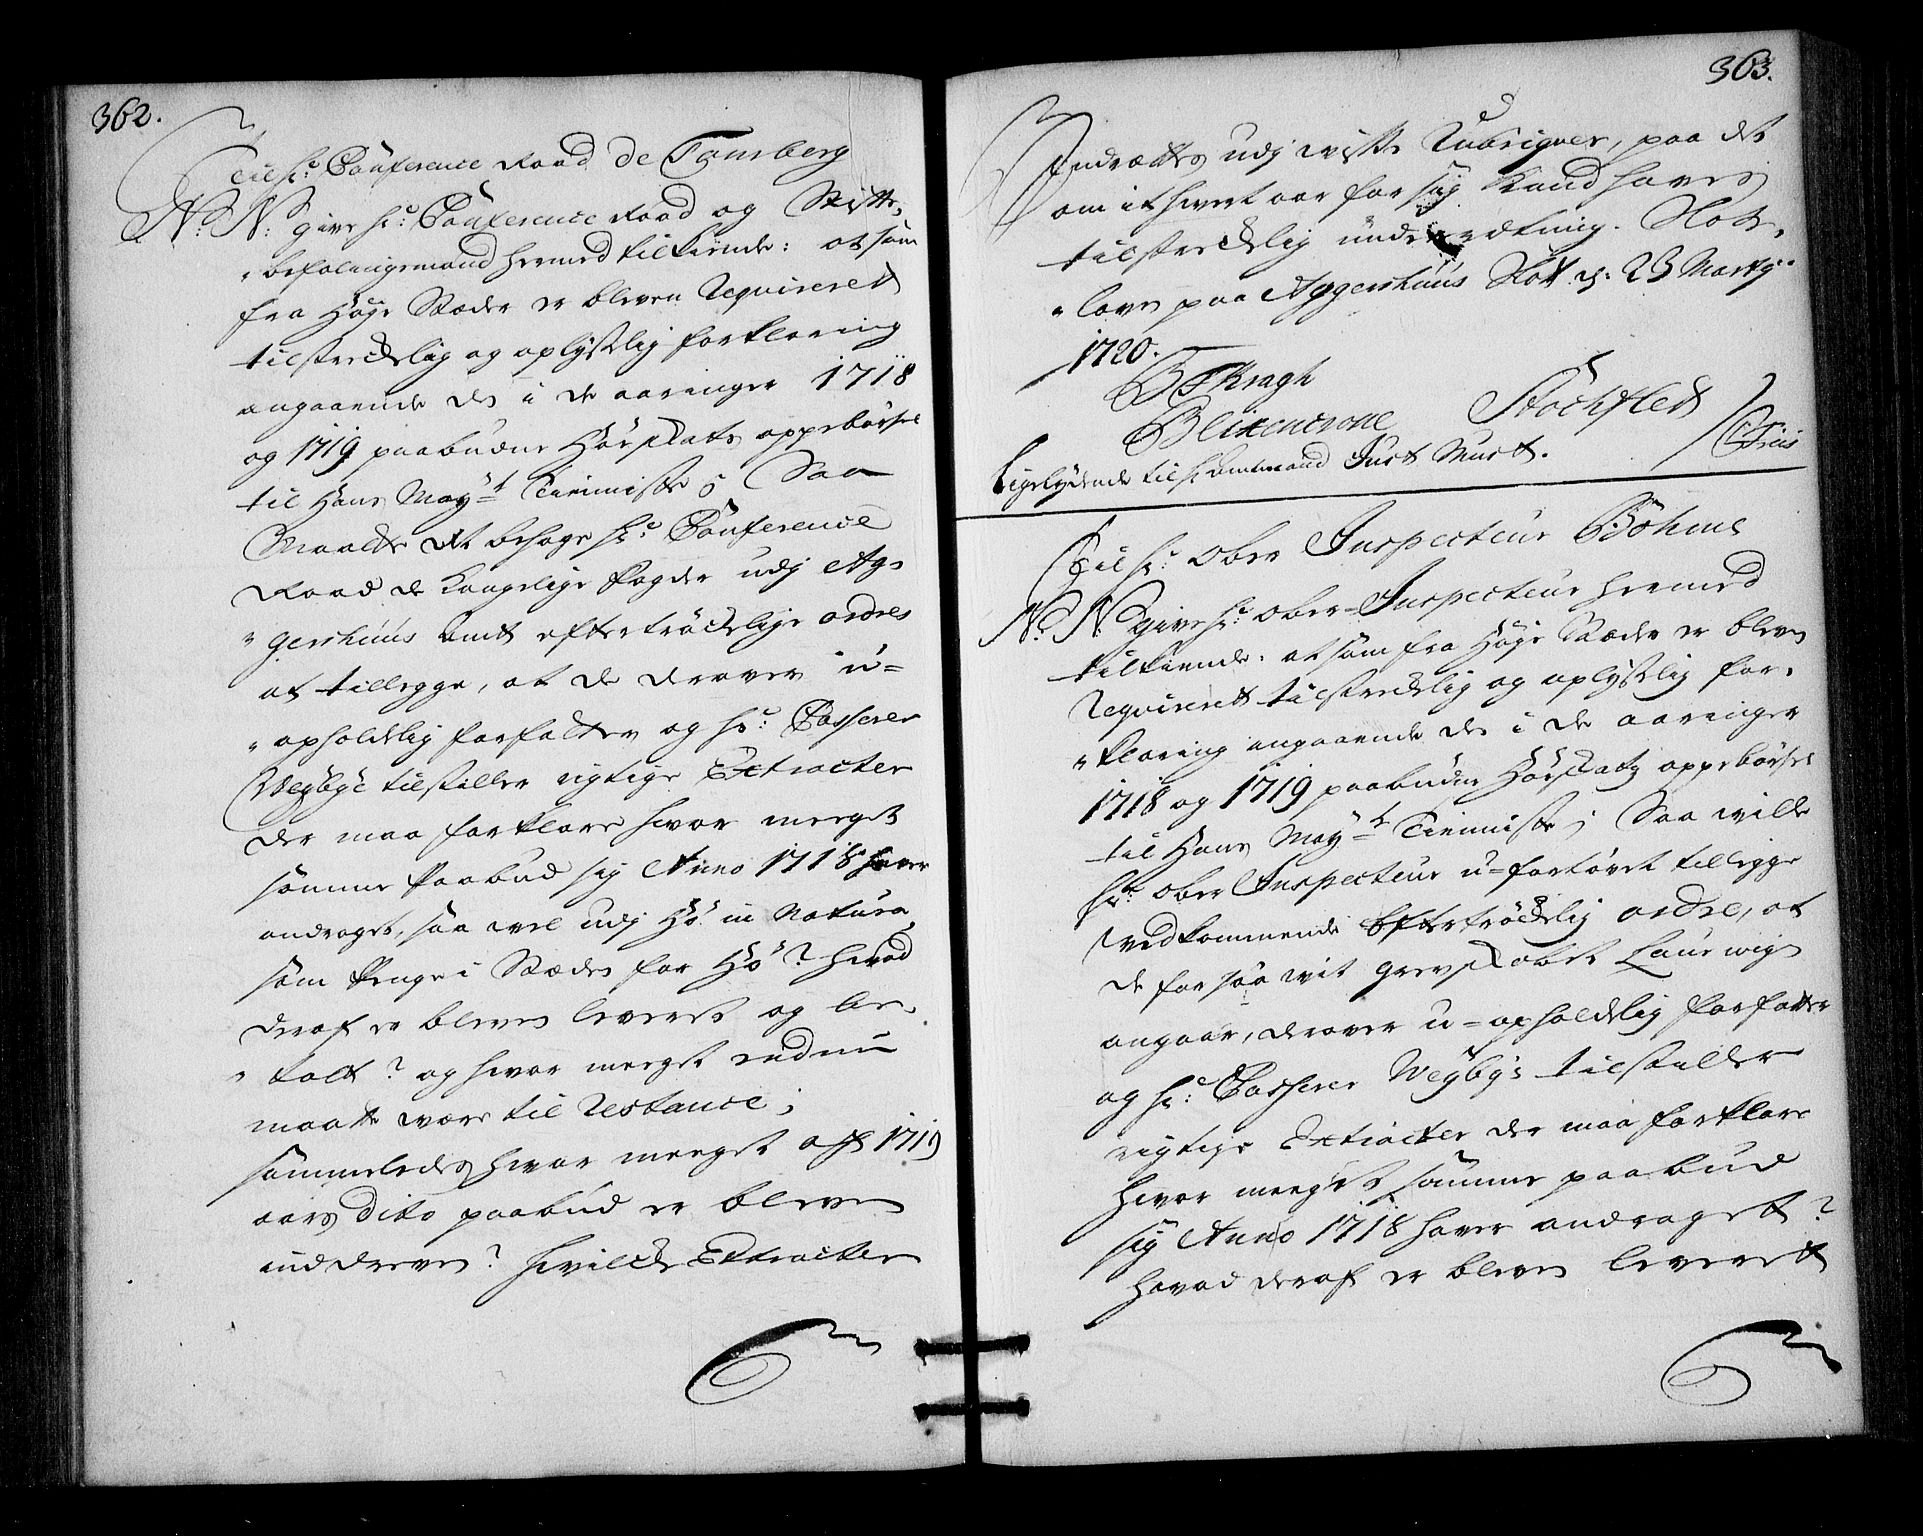 362.
Til Hr: Conference Raad De Tonsberg
N: N: give Hr: Conference Raad og Stifts„
„befalingsmand hermed tilkiende: at som
fra Høye Stæder er bleven Requireret
tilstreckelig og oplyselig forklaring
angaaende de i de aaringer 1718
og 1719 paabudne Høeskatts oppebørsel
til Hans Mayts Tienniste; Saa
Maatte det behage Hr: Conference
Raad de Kongelige Fogder udj Ag„
„gershuus Amt eftertrøckelige ordres
at tillegge, at de derover u-
„opholdelig forfatter og Hr: Casserer
Weÿbÿe tilstiller rigtige Extracter
der maa forklare hvor meeget
samme Paabud sig Anno 1718 haver
andraget, saa vel udj Høe in Natura
som Penge i Stæden for Høe? hvad
deraf er bleven leveret og be„
„talt? og hvor meeget endnu
maatte være til Restance;
sammeledes hvor meeget af 1719
aars Dito paabud er bleven
inddreven? Hvilcke Extracter
363.
Indrættes udj visse Rubriqver, paa det
om it hvert aar for sig kand haves
tilstreckelig underrætning. Slots„
„loven paa Aggershuus Slot d: 23 Martÿ
1720.
B F Kragh
Blixencrone Stockfled
/ C Friis
Ligelydende til Hr Amtmand Just Must.
Til Hr: Ober Inspecteur Bøhme
N: N: give Hr: Ober-Inspecteur hermed
tilkiende: at som fra Høye Stæder er bleven
Requireret tilstreckelig og oplyselig for„
„klaring angaaende de i de aaringer
1718 og 1719 paabudne Høeskatts oppebørsel
til Hans Mayts Tienniste; Saa wille
Hr: Ober Inspecteur u-fortøvet tillegge
vedkommende Eftertrøckelig ordre, at
de for saa vit Grevskabet Laurwigen
angaar, derover u-opholdelig forfatter
og Hr: Casserer Weÿbÿe tilstiller
rigtige Extracter der maa forklare
hvor meeget samme paabud
sig Anno 1718 haver andraget?
hvad deraf er bleven leveret